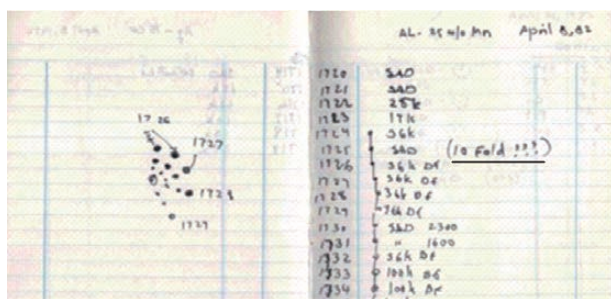 1726
1727
1728
1729
AL-25 w/o Mn April 8, 82
1720 SAD
1721 SAD
1722 25k
1723 17k
1724 36k
1725 SAD (10 Fold ???)
1726 36k Df
1727 36k Df
1728 36k Df
1729 36k Df
1730 SAD 2300
1731 " 1600
1732 36k Df
1733 100k Df
1734 100k Df